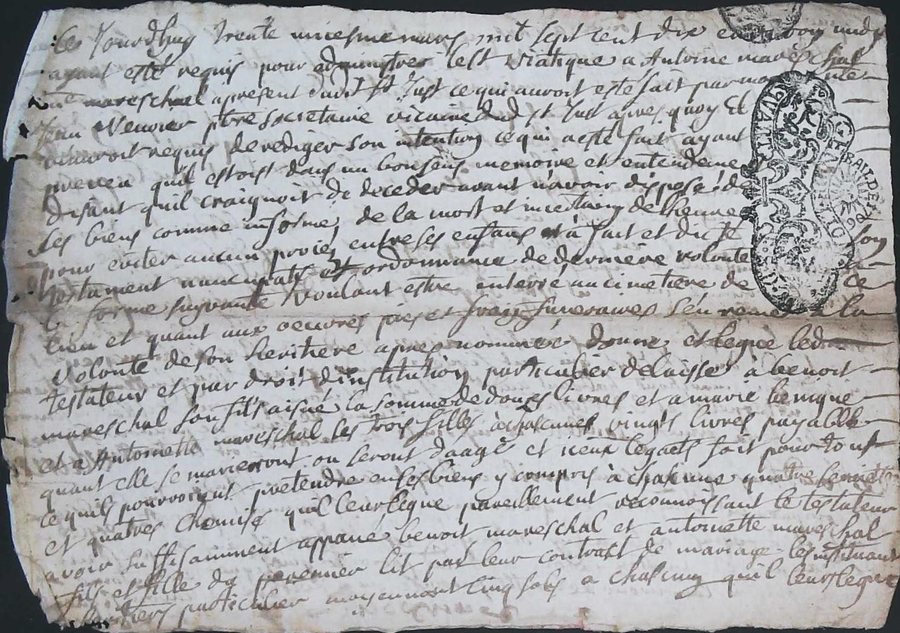 Ce Jourdhuy trente uniesme mars mil sept cent dix
ayant esté requis pour administrer le st viatique a Antoine mareschal
mareschal apresent dudit st Just ce qui auroit esté fait par
Jean Verrier ptre secretaire vicaire dud st Just apres quoy il
requis de rediger son intention ce qui a esté fait ayant
preveu quil estoist dans un bon sens memoire et entendeme
disant quil craignoit de deceder avant n'avoir disposé de
ses biens comme informé de la mort et incertain de lheure son
pour eviter aucun proies entre ses enfans a fait et dicté
testament nuncupatif et ordonnance de derniere volonte
forme suyvante voulant estre enterré au cimetiere de ce
lieu et quant aux oeuvres pies et frays funeraires sen reme a la
volonté de son heritiere apres nommée donne et legue led
testateur et par droit dinstitution particulier delaisse a benoit
mareschal son fils aisné la somme de douze livres et a marie
et a Antoinette mareschal ses trois filles a chascunes vingts livres payable
quant elle se marieront ou seront daagé et iceux legaets fait pour tout
ce quils pourroient pretendre en ses biens y compris a chacune quatre serviete
et quatres chemise quil leur legue pareillement reconnoissant le testateur
avoir suffisamment appané benoit mareschal et antoinette mareschal
fils et fille du premier lit par leur contract de mariage les instituant
particulier moyennant cinq sols a chascung quil leur legue
GENERAL DE